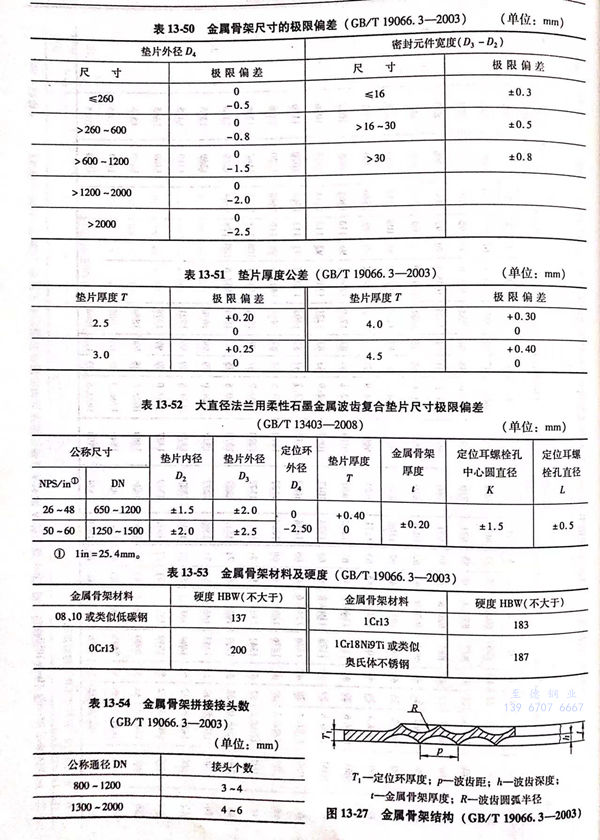 表 13-50 金属骨架尺寸的极限偏差（GB/T 19066.3—2003） （单位：mm）
垫片外径 D4 密封元件宽度（D3－D2）
尺 寸 极 限 偏 差 尺 寸 极 限 偏 差
≤260 0 -0.5 ≤16 ±0.3
>260～600 0 -0.8 >16～30 ±0.5
>600～1200 0 -1.5 >30 ±0.8
>1200～2000 0 -2.0
>2000 0 -2.5
表 13-51 垫片厚度公差（GB/T 19066.3—2003） （单位：mm）
垫片厚度 T 极 限 偏 差 垫片厚度 T 极 限 偏 差
2.5 +0.20 0 4.0 +0.30 0
3.0 +0.25 0 4.5 +0.40 0
表 13-52 大直径法兰用柔性石墨金属波齿复合垫片尺寸极限偏差
（GB/T 13403—2008） （单位：mm）
公称尺寸 垫片内径 D2 垫片外径 D3 定位环外径 D4 垫片厚度 T 金属骨架厚度 t 定位耳螺栓孔中心圆直径 K 定位耳螺栓孔直径 L
NPS/in① DN
26～48 650～1200 ±1.5 ±2.0 0 -2.50 +0.40 0 ±0.20 ±1.5 ±0.5
50～60 1250～1500 ±2.0 ±2.5
① 1in＝25.4mm。
表 13-53 金属骨架材料及硬度（GB/T 19066.3—2003）
金属骨架材料 硬度 HBW（不大于） 金属骨架材料 硬度 HBW（不大于）
08、10 或类似低碳钢 137 1Cr13 183
0Cr13 200 1Cr18Ni9Ti 或类似奥氏体不锈钢 187
表 13-54 金属骨架拼接接头数
（GB/T 19066.3—2003）
（单位：mm）
公称通径 DN 接头个数
800～1200 3～4
1300～2000 4～6
至德钢业
139 6707 6667
R
T1 p h t
T1—定位环厚度；p—波齿距；h—波齿深度；
t—金属骨架厚度；R—波齿圆弧半径
图 13-27 金属骨架结构（GB/T 19066.3—2003）